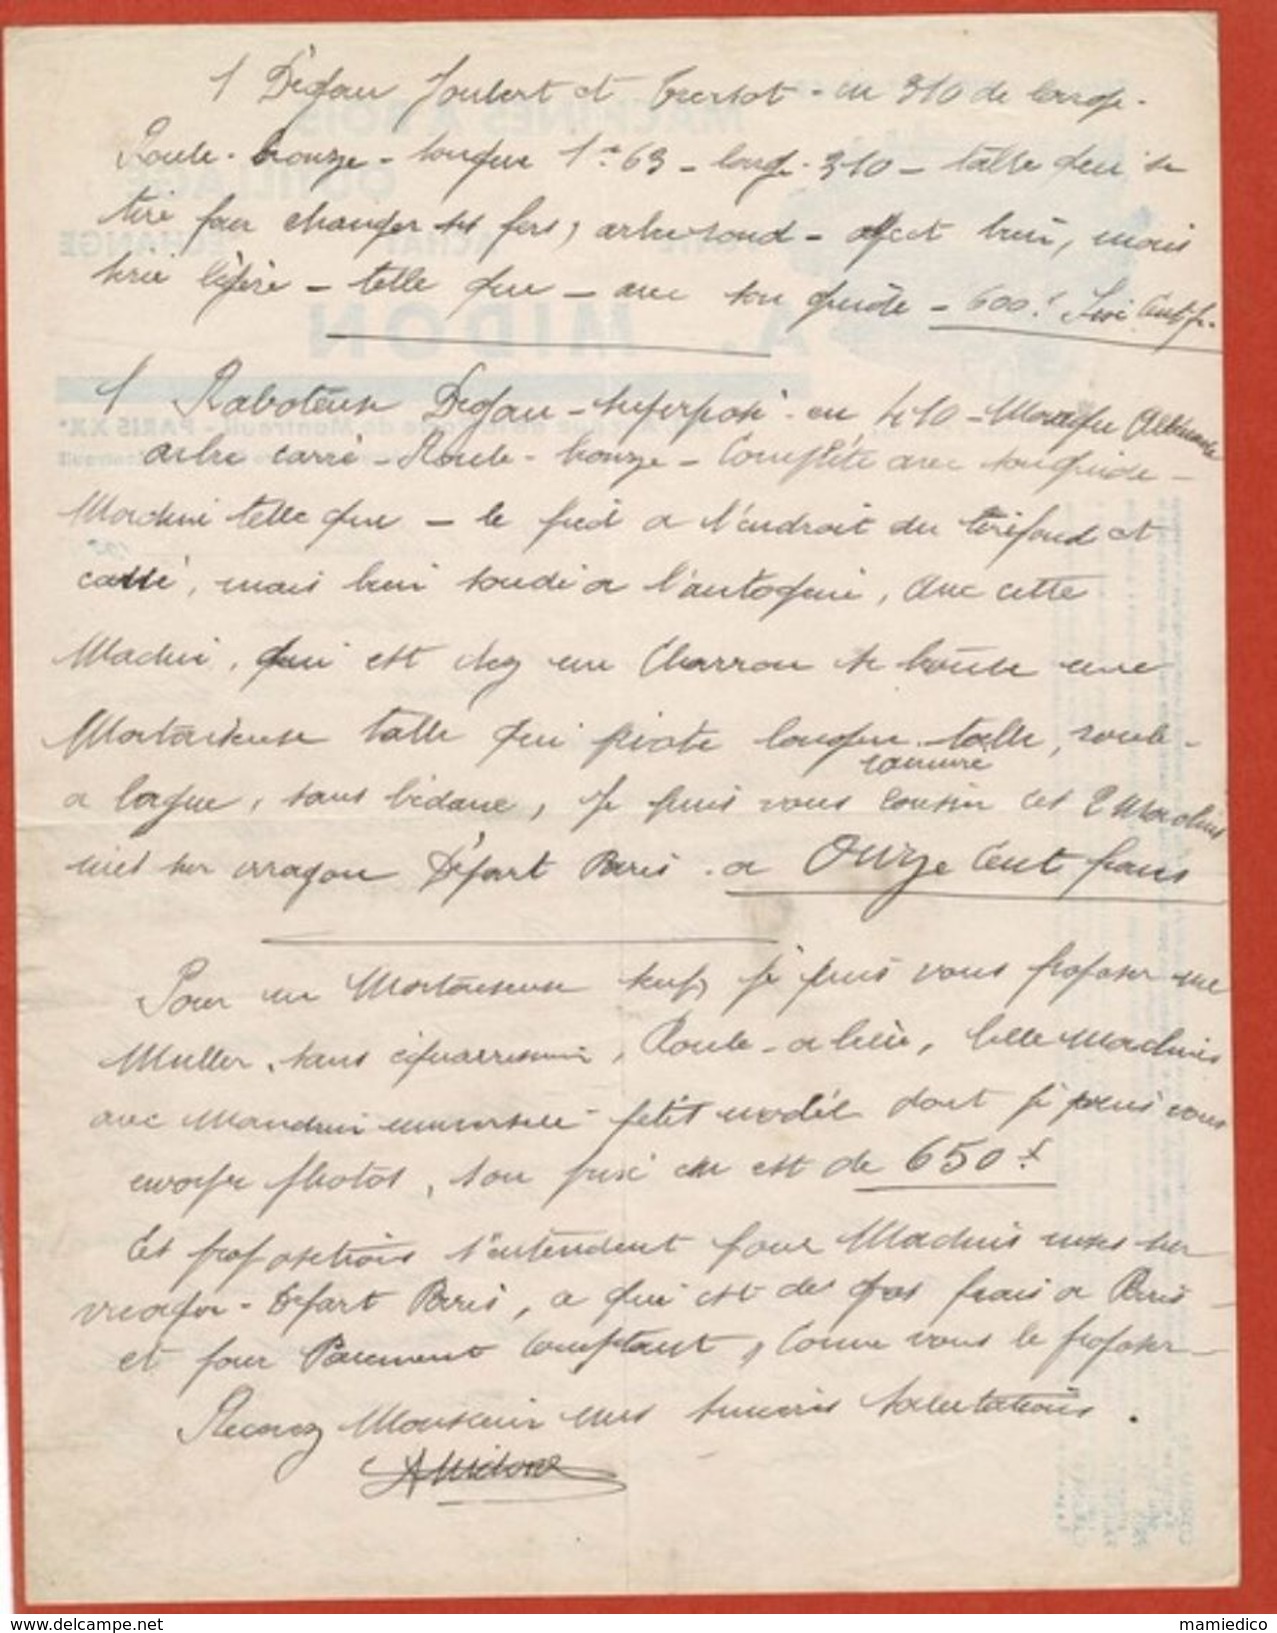 1 Dégau Joubert et Tiersot - en 310 de large -
Roule - bronze - longueur 1m63 - large - 310 - table qui se
tire pour changer ses fers, arbre rond - aspect bien, mais
série légère - telle que - avec son guide - 600 f Six Cent fr.
1 Raboteuse Dégau - superposé - en 410 - Marque Allemande
arbre carré - Roule - bronze - Complète avec son guide -
Machine telle que - le pied a l'endroit du tirefond et
cassé, mais bien soudé a l'autogène, avec cette
Machine, qui est chez un Charron se trouve une
Mortaiseuse table qui pivote longue table, roule -
rainure
a bague, sans bédane, je puis vous ces 2 Machines
mises sur wagon Départ Paris - a Onze Cent francs
Pour une Mortaiseuse seule, je puis vous proposer une
Muller, sans équarrissoir, Roule - a bille, belle Machine
avec Mandrin universelle - petit modèle dont je puis vous
envoyer photos, son prix en est de 650 f
Ces propositions s'entendent pour Machines mises sur
wagon - Départ Paris, a qui est de gros frais a Paris -
et pour Paiement Comptant, Comme vous le proposer -
Recevez Monsieur mes sincères salutations.
AMidon
MACHINES A BOIS
OUTILLAGE
ACHAT ECHANGE
A. MIDON
de Montreuil - PARIS XXe